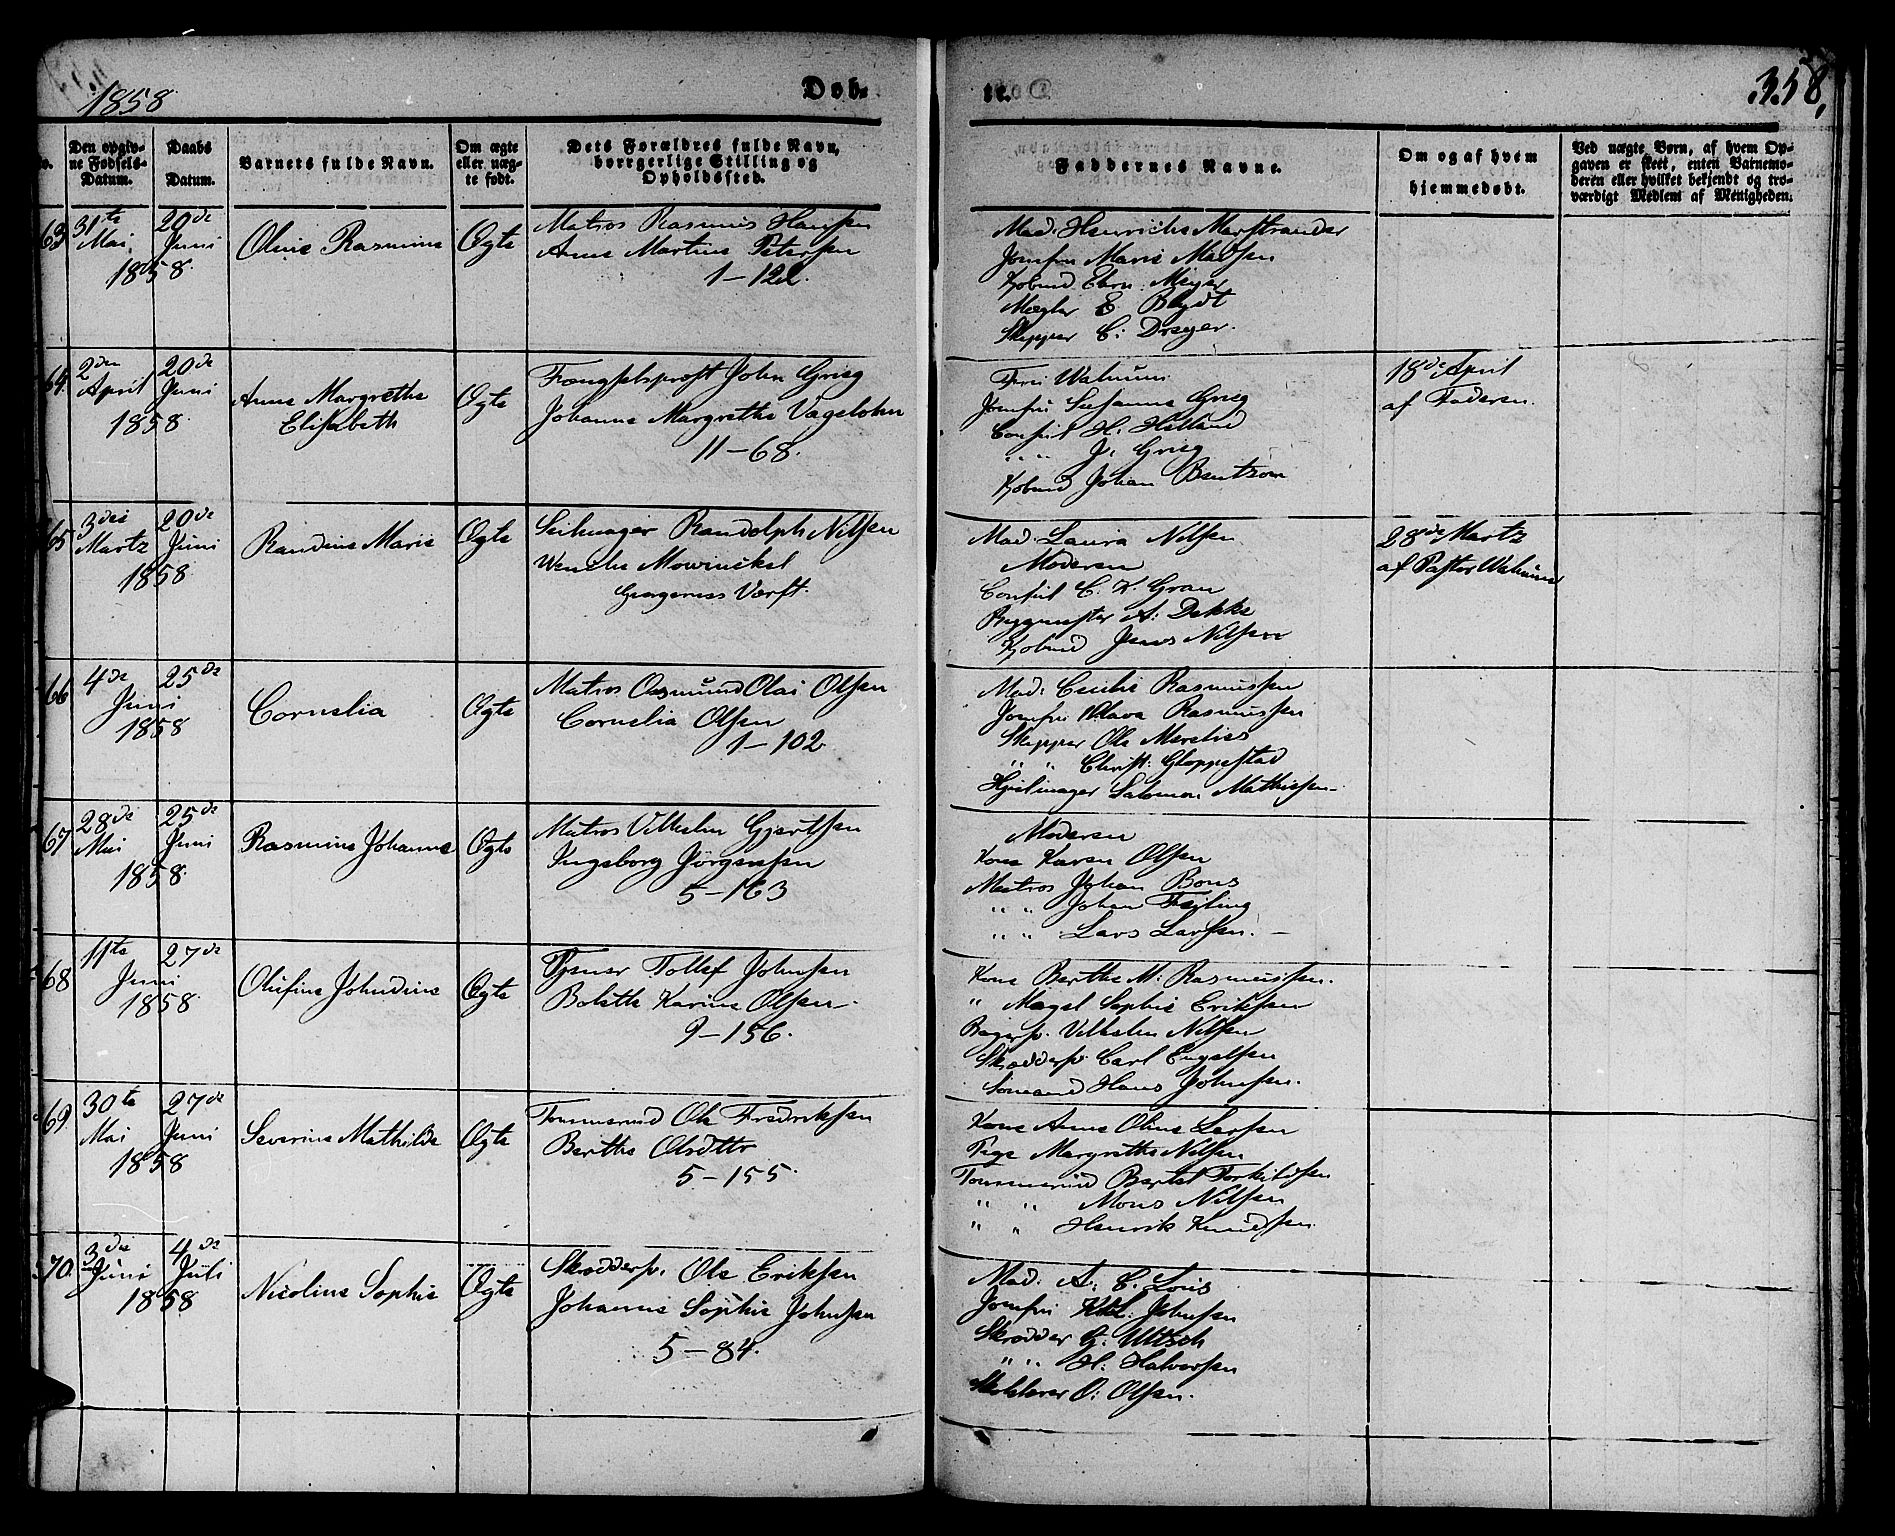 1858
Døb-
te.
358,
No.
Den opgiv-
ne Fødsels-
Datum.
Daabs
Datum.
Barnets fulde Navn.
Om ægte
eller uæg-
te født.
Dets Forældres fulde Navn,
borrgerlige Stilling og
Opholdssted.
Faddernes Navne.
Om og af hvem
hjemmedøbt.
Ved uægte Børn, af hvem Op-
gaven er skeet, enten Barnemo-
deren eller hvilket bekjendt og tro-
værdigt Medlem af Menigheden.
63
31te
Mai
1858
20de
Juni
Oline Rasmine
Ægte
Matros Rasmus Hansen
Anne Martine Petersen
1-122.
Mad. Henriche Marstrander
Jomfru Marie Madsen
Kjøbmd. Ehrn. Meyer
Mægler E Blydt
Skipper C: Dreyer.
64.
2den
April
1858
20de
Juni
Anne Margrethe
Elisabeth
Ægte
Fængselsprost John Grieg
Johanne Margrethe Vogelsohn
11-68.
Fru Walnum
Jomfru Susanne Grieg
Consul H. Helland
" " J. Grieg
Kjøbmd Johan Bentzon
18de April
af Faderen.
65
3die
Martz
1858
20de
Juni
Randine Marie
Ægte
Seilmager Randolph Nilsen
Wenche Mowinckel
Georgernes Værft.
Mad. Laura Nilsen
Moderen
Consul C. K. Gran
Byggmester A: Dekke
Kjøbmd Jens Nilsen
28de Martz
af Pastor Walnum
66
4de
Juni
1858
25de
Cornelia
Ægte
Matros Aasmund Olai Olsen
Cornelia Olsen
1-102
Mad: Cecilie Rasmussen
Jomfru Rasmussen
Skipper Ole Merelies
" " Christ: Gloppestad
Hjulmager Salomon Mathissen-
67
28de
Mai
1858
25de
Juni
Rasmine Johanne
Ægte
Matros Vilhelm Gjertsen
Ingeborg Jørgensen
5-163
Moderen
Kone Karen Olsen
Matros Johan Bons
" " Johan Fejling
" " Lars Larsen. -
68
11te
Juni
1858
27de
Olufine Johndine
Ægte
Tjener Tollef Johnsen
Bolette Karine Olsen.
9-156.
Kone Berthe M: Rasmussen.
" Magel Sophie Eriksen
Bagersv. Vilhelm Nilsen
Skrædersv. Carl Engelsen
Sømand Hans Johnsen.
69
30te
Mai
1858
27de
Juni
Severine Mathilde
Ægte
Tømmermd Ole Fredriksen
Berthe Olsdttr
5-155.
Kone Anne Oline Larsen
Pige Margrethe Nilsen
Tømmermd Bertel Torkildsen
" " Mons Nilsen
" " Henrik Knudsen
70.
3die
Juni
1858
4de
Juli
Nicoline Sophie
Ægte
Skrædersv. Ole Eriksen
Johanne Sophie Johnsen
5-84.
Mad. A. C. Lous
Jomfru Johnsen
Skrædder G. Uttsch
" " H. Halvorsen
O: Olsen.